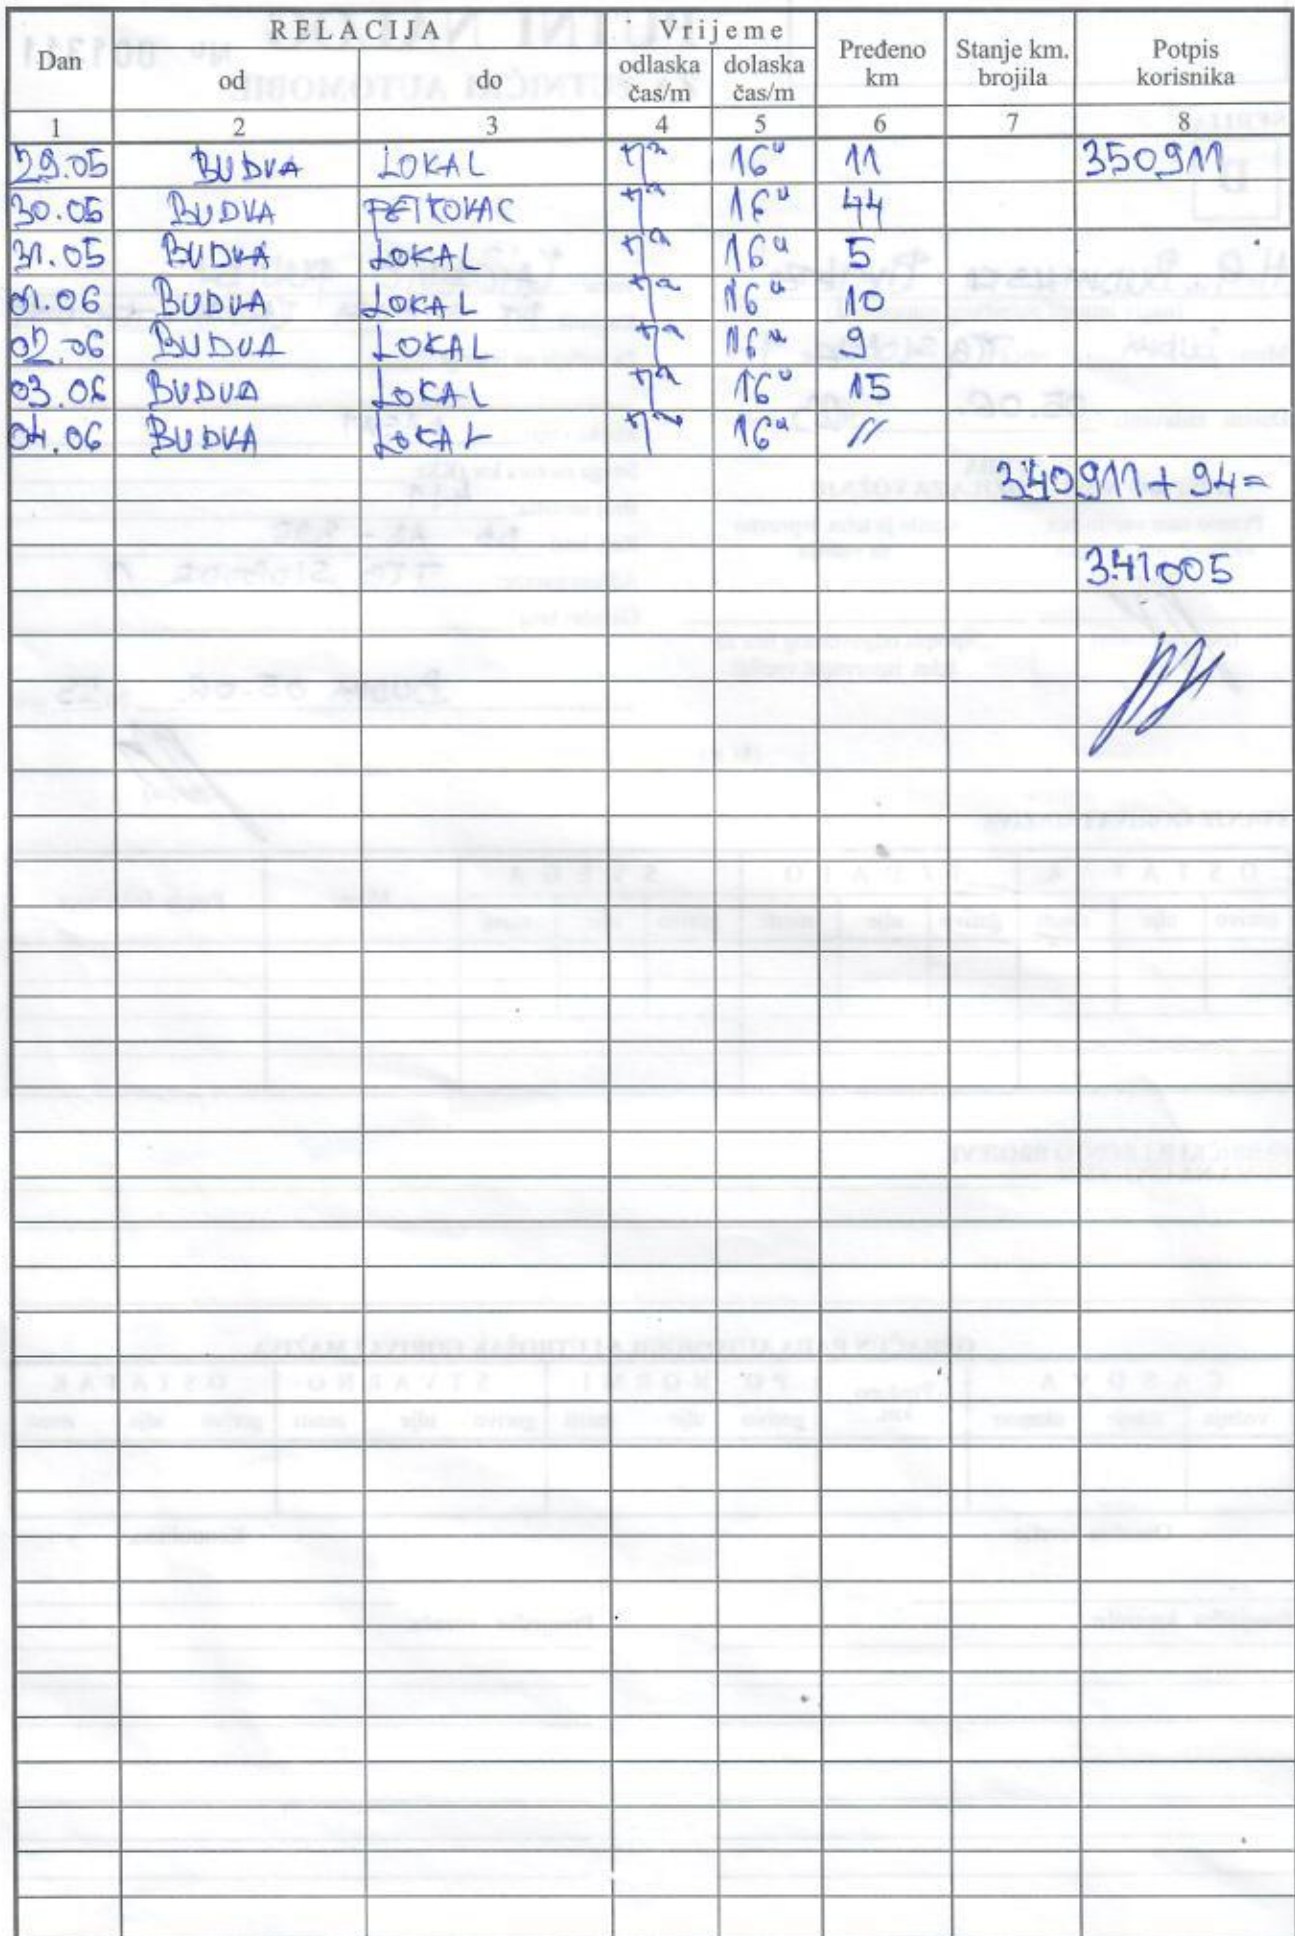 RELACIJA Vrijeme
Dan od do odlaska čas/m dolaska čas/m Pređeno km Stanje km. brojila Potpis korisnika
1 2 3 4 5 6 7 8
29.05 BUDVA LOKAL 7 16 11 350911
30.05 BUDVA PETROVAC 7 16 44
31.05 BUDVA LOKAL 7 16 5
01.06 BUDVA LOKAL 7 16 10
02.06 BUDVA LOKAL 7 16 9
03.06 BUDVA LOKAL 7 16 15
04.06 BUDVA LOKAL 7 16 //
340911+94=
341005